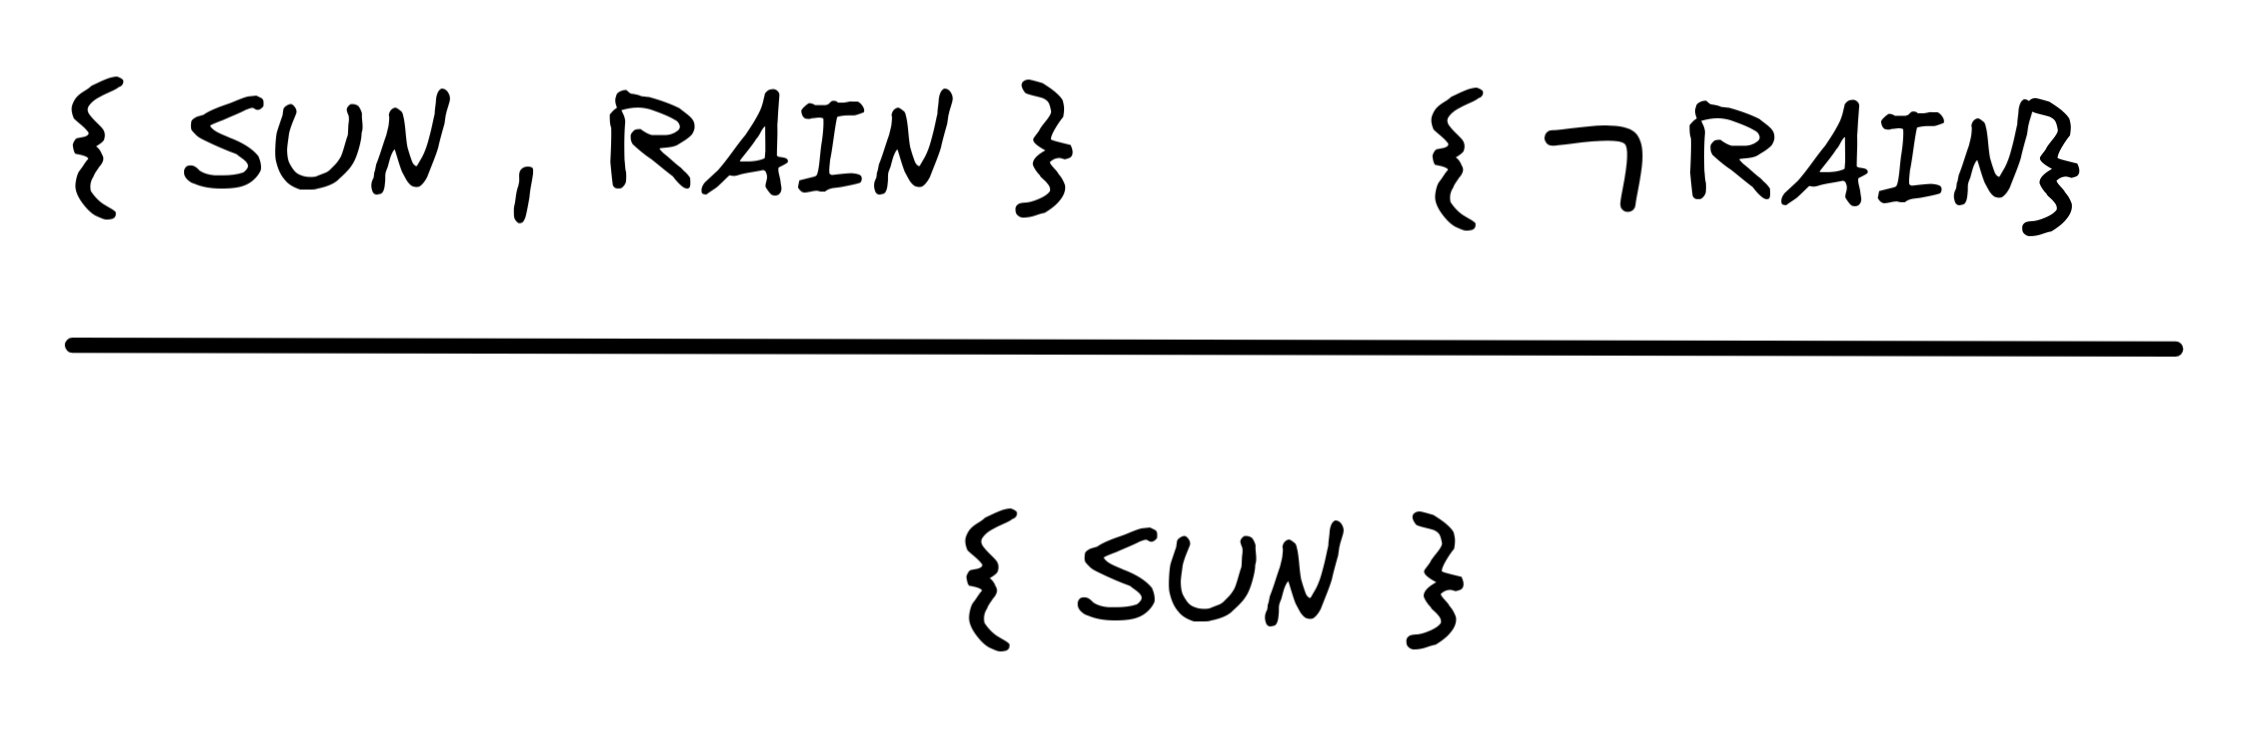 { SUN , RAIN } { ¬ RAIN}
{ SUN }